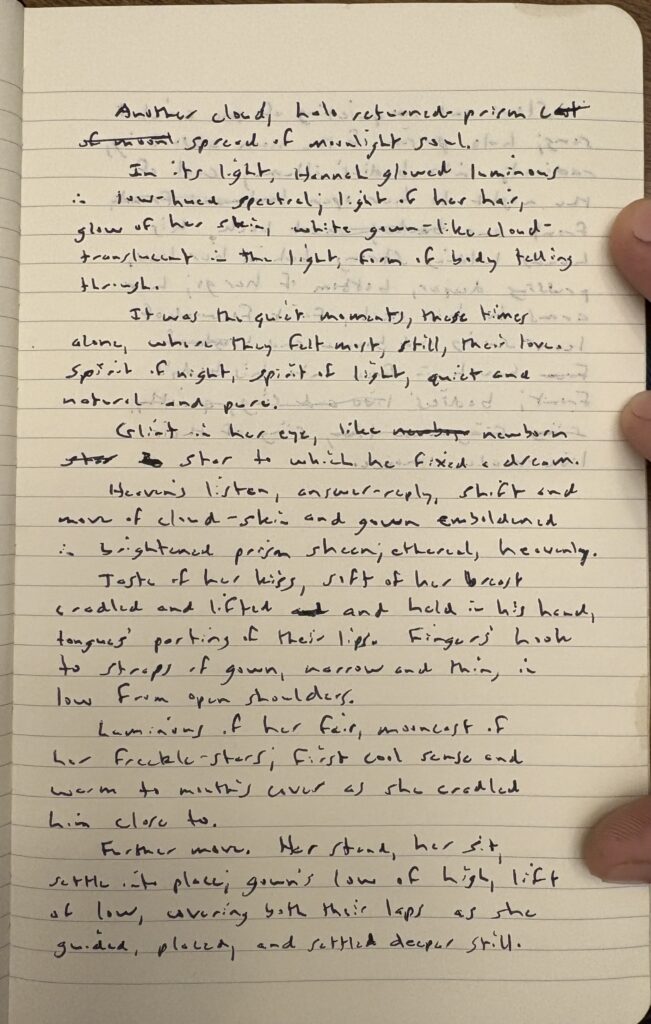 Another cloud, halo returned prism cast
of moon spread of moonlight soul.
In its light, Hannah glowed luminous
∴ low-hued spectral; light of her hair,
glow of her skin, white gown-like cloud-
translucent in the light, form of body telling
through.
It was the quiet moments, these times
alone, where they felt most, still, their love.
Spirit of night, spirit of light, quiet and
natural and pure.
Glint in her eye, like newborn newborn
star to which he fixed a dream.
Heavens listen, answer-reply, shift and
move of cloud-skin and gown emboldened
∴ brightened prism sheen; ethereal, heavenly.
Taste of her kiss, sift of her breast
cradled and lifted and and held in his hand,
tongues' parting of their lips. Fingers' hook
to straps of gown, narrow and thin, in
low from open shoulders.
Luminous of her fair, mooncast of
her freckle-stars; first cool sense and
warm to mouth's cover as she cradled
him close to.
Further move. Her stand, her sit,
settle into place; gown's low of high, lift
of low, covering both their laps as she
guided, placed, and settled deeper still.